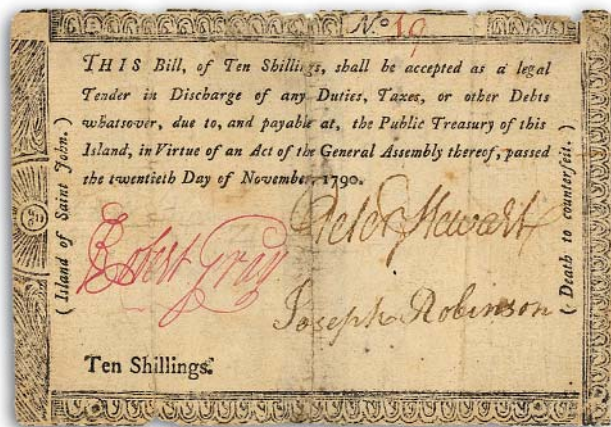 No. 19
THIS Bill, of Ten Shillings, shall be accepted as a legal
Tender in Discharge of any Duties, Taxes, or other Debts
whatsover, due to, and payable at, the Public Treasury of this
Island, in Virtue of an Act of the General Assembly thereof, passed
the twentieth Day of November, 1790.
(Island of Saint John.)
Robert Gray
Peter Stewart
Joseph Robinson
(Death to counterfeit.)
Ten Shillings.